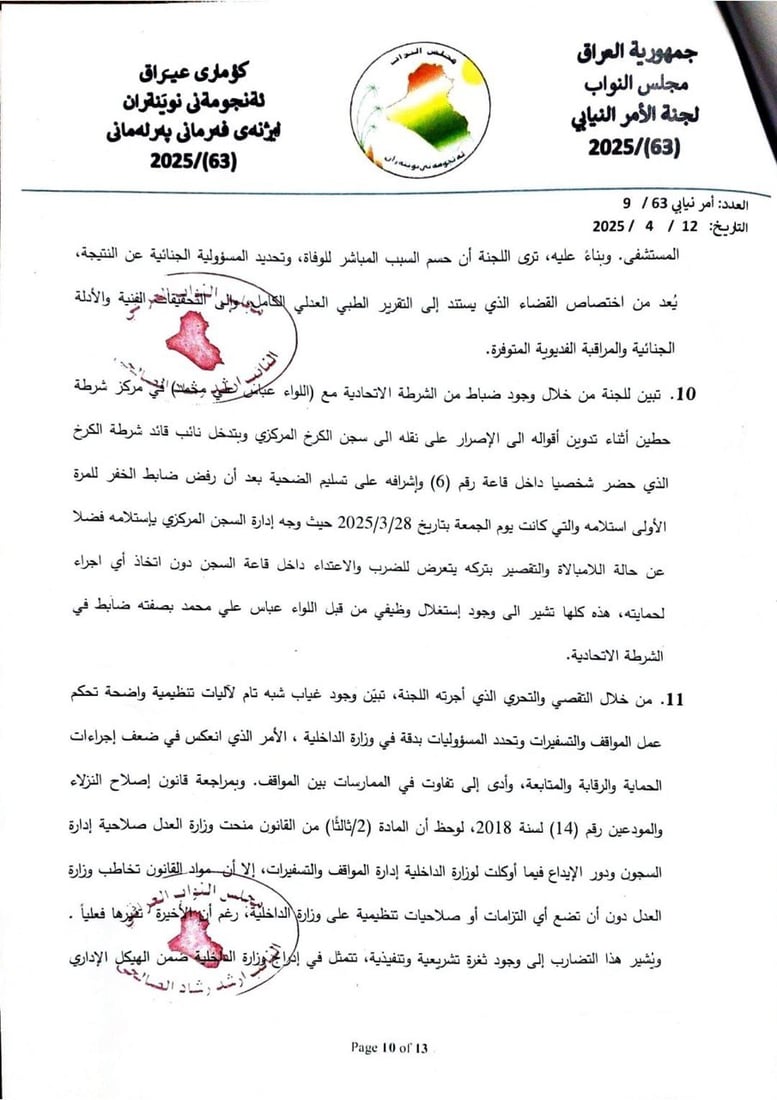 جمهورية العراق
مجلس النواب
لجنة الأمر النيابي
(63)/2025
كۆماری عێراق
ئەنجومەنی نوێنەران
لیژنەی فەرمانی پەرلەمانی
(63)/2025
مجلس النواب
ئەنجومەنی نوێنەران
العدد: أمر نيابي 63 / 9
التاريخ: 12 / 4 / 2025
المستشفى. وبناءً عليه، ترى اللجنة أن حسم السبب المباشر للوفاة، وتحديد المسؤولية الجنائية عن النتيجة،
يُعد من اختصاص القضاء الذي يستند إلى التقرير الطبي العدلي الكامل، وإلى التحقيقات الفنية والأدلة
الجنائية والمراقبة الفديوية المتوفرة.
10. تبين للجنة من خلال وجود ضباط من الشرطة الاتحادية مع (اللواء عباس علي محمد) في مركز شرطة
حطين أثناء تدوين أقواله الى الإصرار على نقله الى سجن الكرخ المركزي وبتدخل نائب قائد شرطة الكرخ
الذي حضر شخصيا داخل قاعة رقم (6) وإشرافه على تسليم الضحية بعد أن رفض ضابط الخفر للمرة
الأولى استلامه والتي كانت يوم الجمعة بتاريخ 2025/3/28 حيث وجه إدارة السجن المركزي بإستلامه فضلا
عن حالة اللامبالاة والتقصير بتركه يتعرض للضرب والاعتداء داخل قاعة السجن دون اتخاذ أي اجراء
لحمايته، هذه كلها تشير الى وجود إستغلال وظيفي من قبل اللواء عباس علي محمد بصفته ضابط في
الشرطة الاتحادية.
11. من خلال التقصي والتحري الذي أجرته اللجنة، تبيّن وجود غياب شبه تام لآليات تنظيمية واضحة تحكم
عمل المواقف والتسفيرات وتحدد المسؤوليات بدقة في وزارة الداخلية ، الأمر الذي انعكس في ضعف إجراءات
الحماية والرقابة والمتابعة، وأدى إلى تفاوت في الممارسات بين المواقف. وبمراجعة قانون إصلاح النزلاء
والمودعين رقم (14) لسنة 2018، لوحظ أن المادة (2/ثالثًا) من القانون منحت وزارة العدل صلاحية إدارة
السجون ودور الإيداع فيما أوكلت لوزارة الداخلية إدارة المواقف والتسفيرات، إلا أن مواد القانون تخاطب وزارة
العدل دون أن تضع أي التزامات أو صلاحيات تنظيمية على وزارة الداخلية، رغم أن الأخيرة تديرها فعلياً .
ويُشير هذا التضارب إلى وجود ثغرة تشريعية وتنفيذية، تتمثل في إدراج وزارة الداخلية ضمن الهيكل الإداري
مجلس النواب العراقي
النائب ارشد رشاد الصالحي
Page 10 of 13